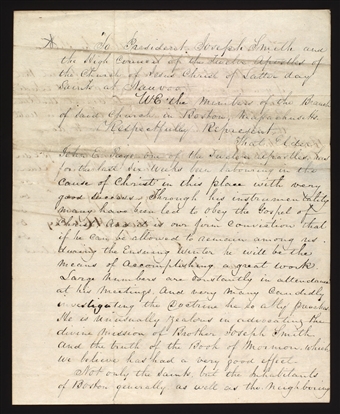 To President Joseph Smith and
the High Council of the Twelve Apostles of
the Church of Jesus Christ of Latter day
Saints at Nauvoo
We the Members of the Branch
of said Church in Boston, Massachusetts
Respectfully Represent
That Elder
John E. Page, one of the Twelve Apostles, has
for the last Six Weeks been labouring in the
cause of Christ in this place with very
good success. Through his instrumentality
many have been led to obey the Gospel of
Christ and it is our firm conviction that
if he can be allowed to remain among us
during the Ensuing Winter he will be the
means of accomplishing a great work
Large numbers are constantly in attendance
at his meetings and very many candidly
investigating the doctrine he so ably preaches
He is unusually zealous in advocating the
divine mission of Brother Joseph Smith
and the truth of the Book of Mormon which
we believe has had a very good effect.
Not only the Saints, but the Inhabitants
of Boston generally as well as the Neighboring